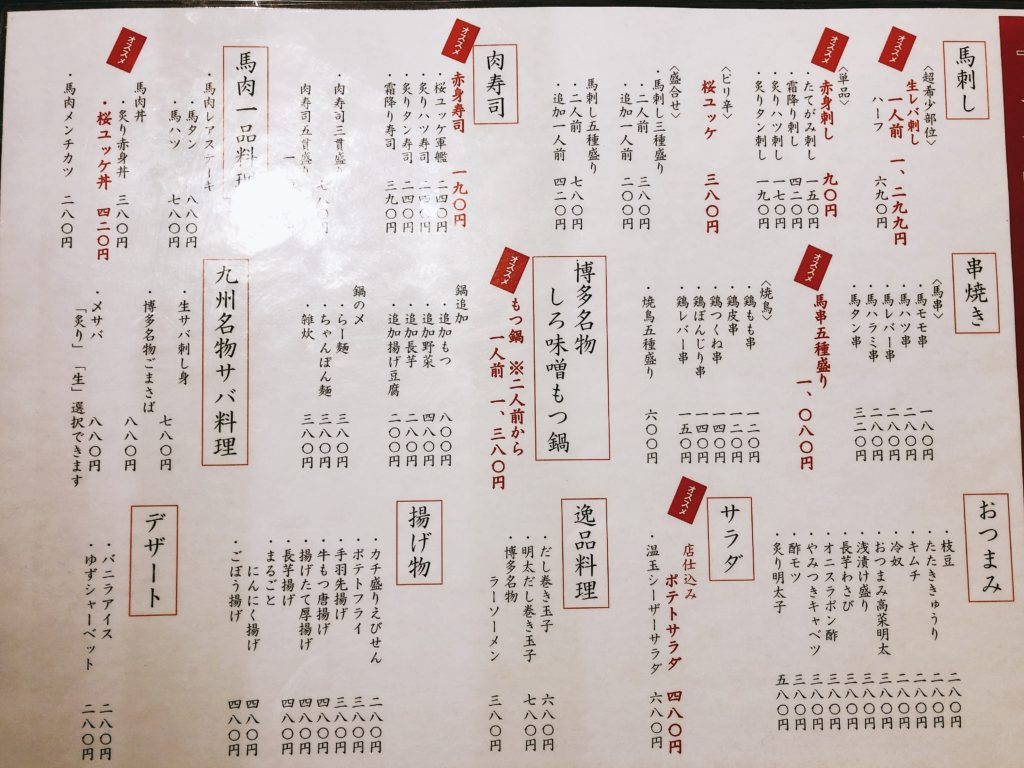 馬刺し
〈超希少部位〉
オススメ
生レバ刺し
一人前 一、二九九円
ハーフ 六九〇円
〈単品〉
オススメ
赤身刺し 九〇円
・たてがみ刺し 一五〇円
・霜降り刺し 四二〇円
・炙りハツ刺し 一七〇円
・炙りタン刺し 一九〇円
〈ピリ辛〉
桜ユッケ 三八〇円
〈盛合せ〉
馬刺し三種盛り
・二人前 三八〇円
・追加一人前 二〇〇円
馬刺し五種盛り
・二人前 七八〇円
・追加一人前 四二〇円
肉寿司
オススメ
赤身寿司 一九〇円
・桜ユッケ軍艦 二四〇円
・炙りハツ寿司 二四〇円
・炙りタン寿司 二四〇円
・霜降り寿司 三九〇円
・肉寿司三貫盛り
肉寿司五貫盛り
馬肉一品料理
・馬肉レアステーキ
・馬タン 八八〇円
・馬ハツ 七八〇円
馬肉丼
・炙り赤身丼 三八〇円
オススメ
・桜ユッケ丼 四二〇円
・馬肉メンチカツ 二八〇円
串焼き
〈馬串〉
・馬モモ串 一八〇円
・馬ハツ串 二八〇円
・馬レバー串 二八〇円
・馬ハラミ串 二八〇円
・馬タン串 三二〇円
オススメ
馬串五種盛り
一、〇八〇円
〈焼鳥〉
・鶏もも串 一二〇円
・鶏皮串 一二〇円
・鶏つくね串 一四〇円
・鶏ぼんじり串 一四〇円
・鶏レバー串 一五〇円
・焼鳥五種盛り 六〇〇円
博多名物
しろ味噌もつ鍋
オススメ
もつ鍋 ※二人前から
一人前 一、三八〇円
鍋追加
・追加もつ 八〇〇円
・追加野菜 四八〇円
・追加長芋 二八〇円
・追加揚げ豆腐 二〇〇円
鍋の〆
・らー麺 三八〇円
・ちゃんぽん麺 三八〇円
・雑炊 三八〇円
九州名物サバ料理
・生サバ刺し身 七八〇円
・博多名物ごまさば 八八〇円
・〆サバ 八八〇円
「炙り」「生」選択できます
おつまみ
・枝豆 二八〇円
・たたききゅうり 二八〇円
・キムチ 二八〇円
・冷奴 二八〇円
・おつまみ高菜明太 三八〇円
・浅漬け盛り 三八〇円
・長芋わさび 三八〇円
・オニスラポン酢 三八〇円
・やみつきキャベツ 三八〇円
・酢モツ 三八〇円
・炙り明太子 五八〇円
サラダ
オススメ
店仕込み
ポテトサラダ 四八〇円
・温玉シーザーサラダ 六八〇円
逸品料理
・だし巻き玉子 六八〇円
・明太だし巻き玉子 七八〇円
・博多名物
ラーソーメン 三八〇円
揚げ物
・カチ盛りえびせん 二八〇円
・ポテトフライ 三八〇円
・手羽先揚げ 三八〇円
・牛もつ唐揚げ 四八〇円
・揚げたて厚揚げ 四八〇円
・長芋揚げ 四八〇円
・まるごと
にんにく揚げ 四八〇円
・ごぼう揚げ 四八〇円
デザート
・バニラアイス 二八〇円
・ゆずシャーベット 二八〇円